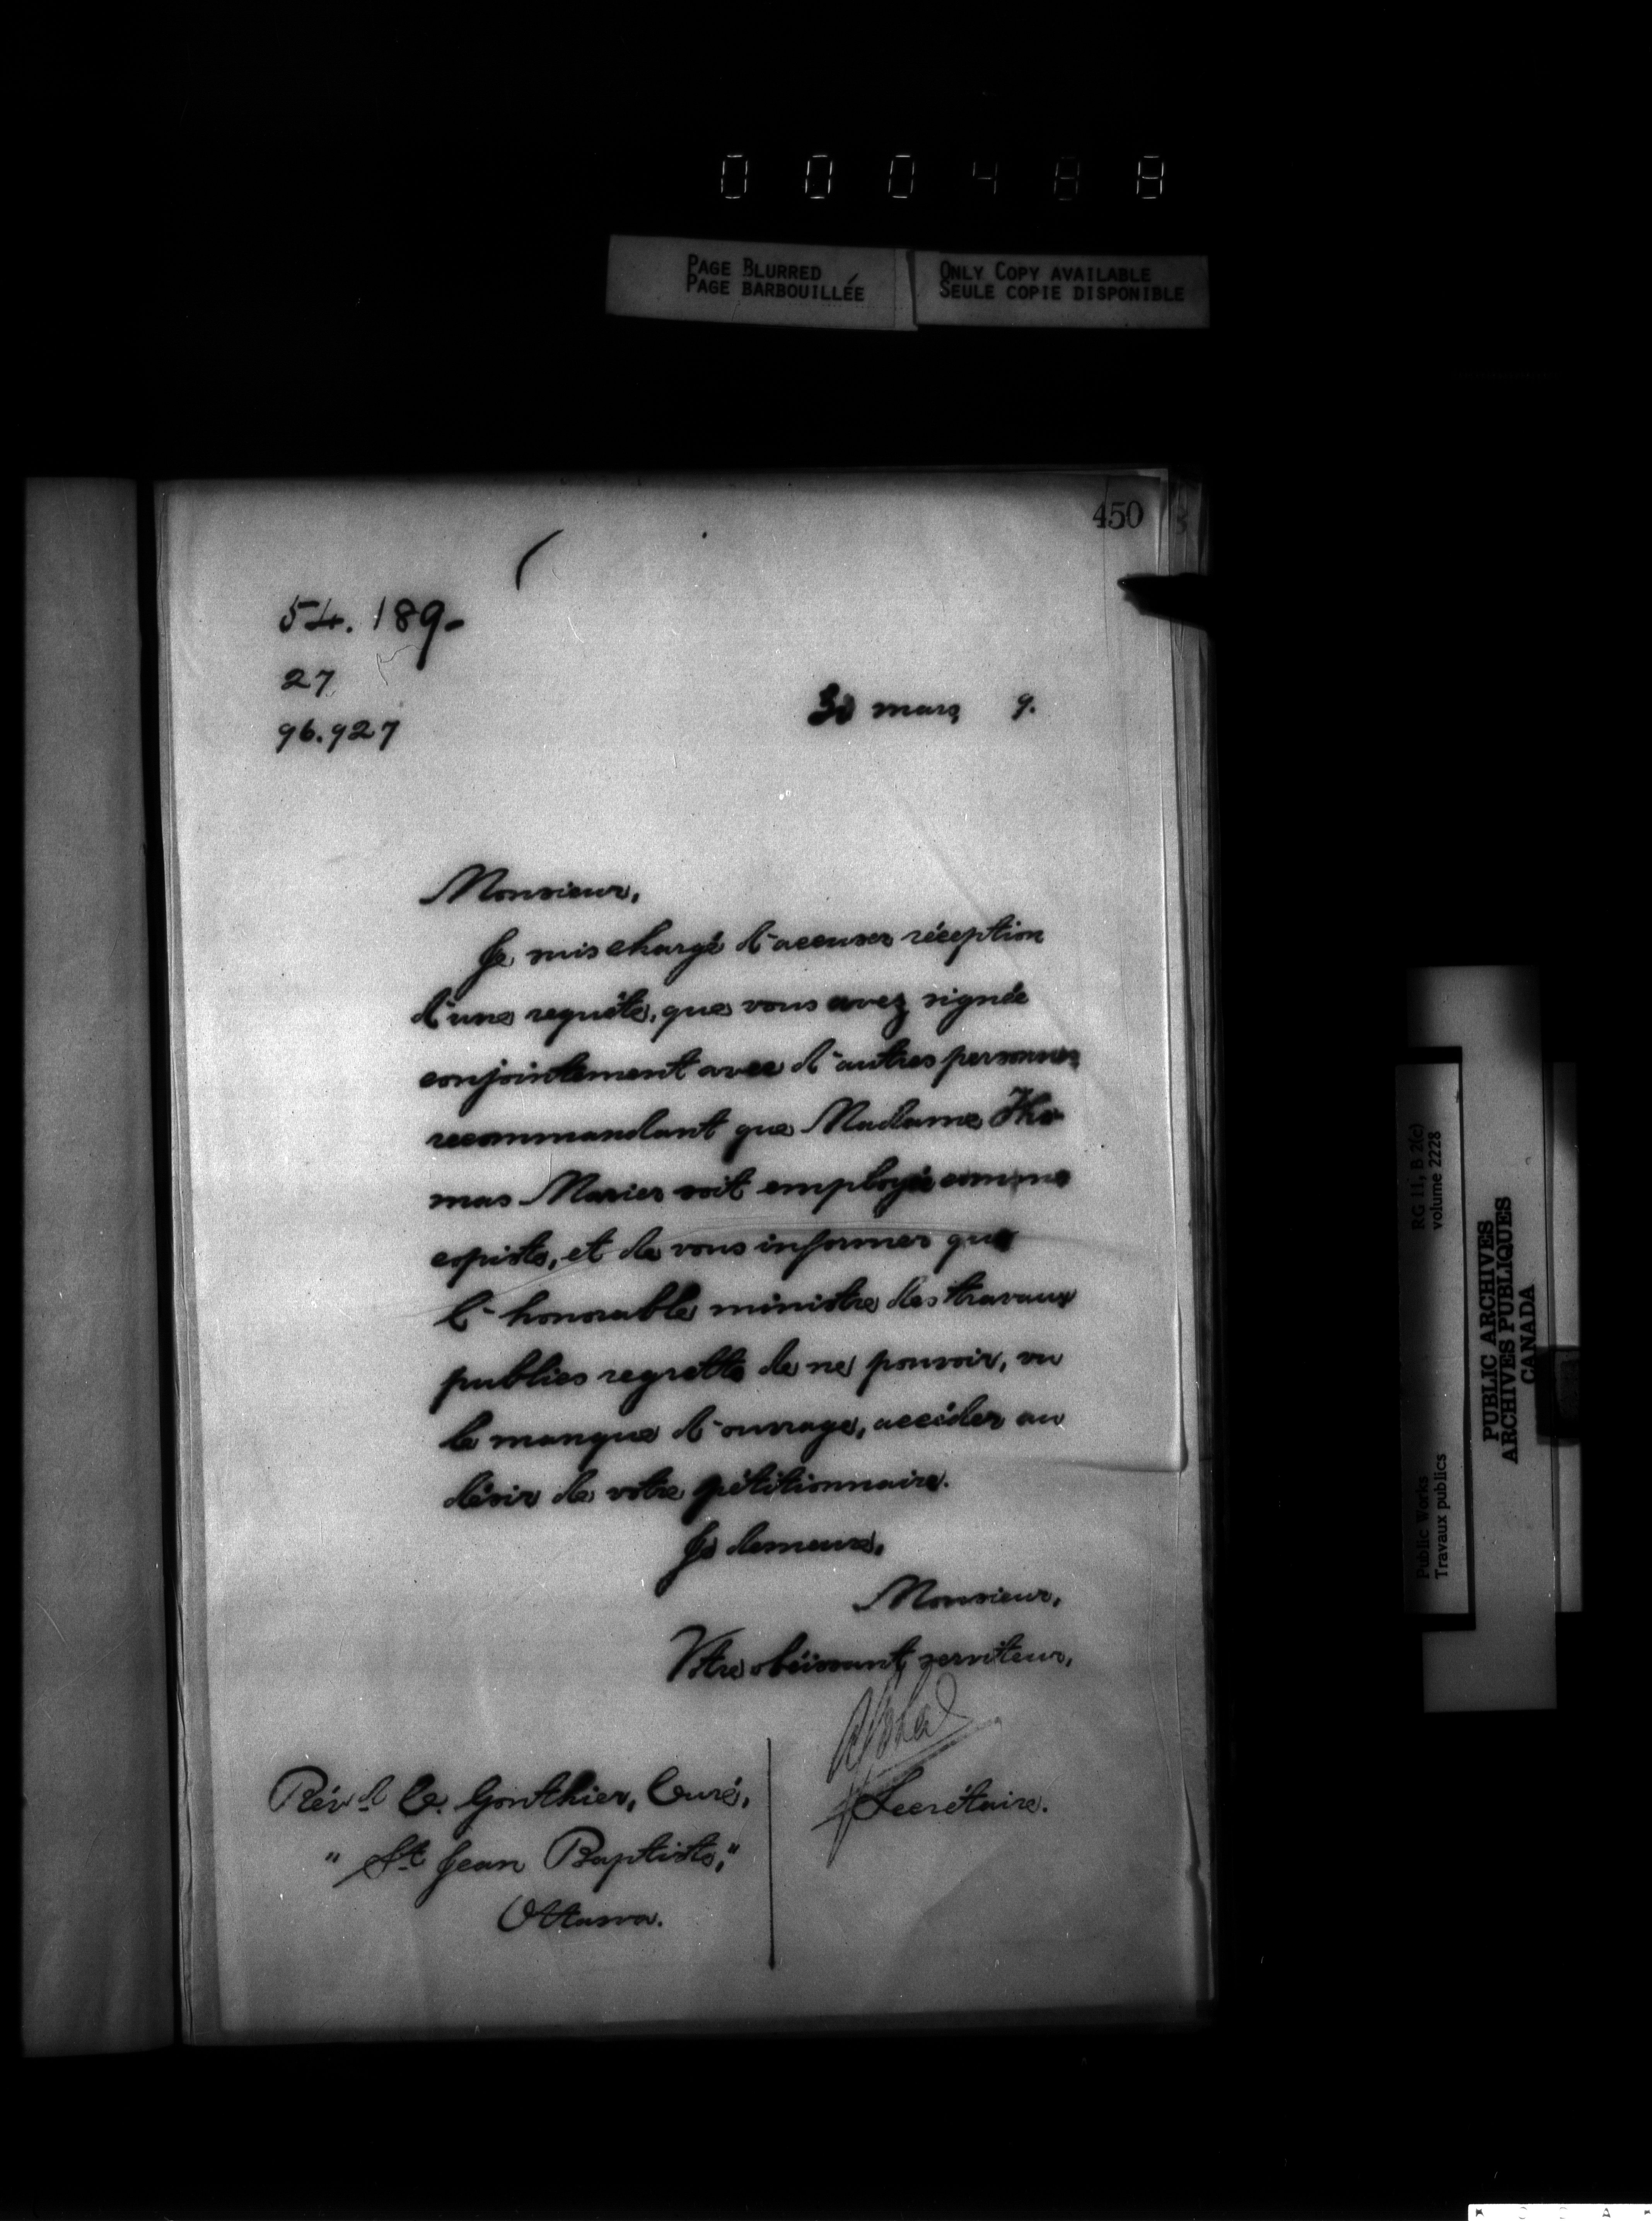 000488
PAGE BLURRED
PAGE BARBOUILLÉE
ONLY COPY AVAILABLE
SEULE COPIE DISPONIBLE
450
54.189-
27
96.927
30 mars 9.
Monsieur,
Je suis chargé d'accuser réception
d'une requête, que vous avez signée
conjointement avec d'autres personnes
recommandant que Madame Tho-
mas Marier soit employée comme
copiste, et de vous informer que
l'honorable ministre des travaux
publics regrette de ne pouvoir, vu
le manque d'ouvrage, accéder au
désir de votre pétitionnaire.
Je demeure,
Monsieur,
Votre obéissant serviteur,
Secrétaire.
Révd. C. Gonthier, Curé,
"St Jean Baptiste,"
Ottawa.
RG 11, B 2(c)
volume 2228
Public Works
Travaux publics
PUBLIC ARCHIVES
ARCHIVES PUBLIQUES
CANADA